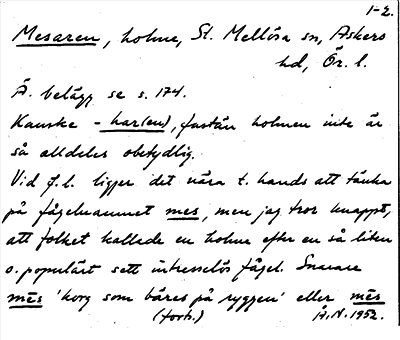 1-2.
Mesaren, holme, St. Mellösa sn, Askers
hd, Ör. l.
Ä. belägg se s. 174.
Kanske - har(en), fastän holmen inte är
så alldeles obetydlig.
Vid f.l. ligger det nära t. hands att tänka
på fågelnamnet mes, men jag tror knappt,
att folket kallade en holme efter en så liten
o. populärt sett intresselös fågel. Snarare
mēs 'korg som bäres på ryggen' eller mēs
(forts.) Å.N. 1952.